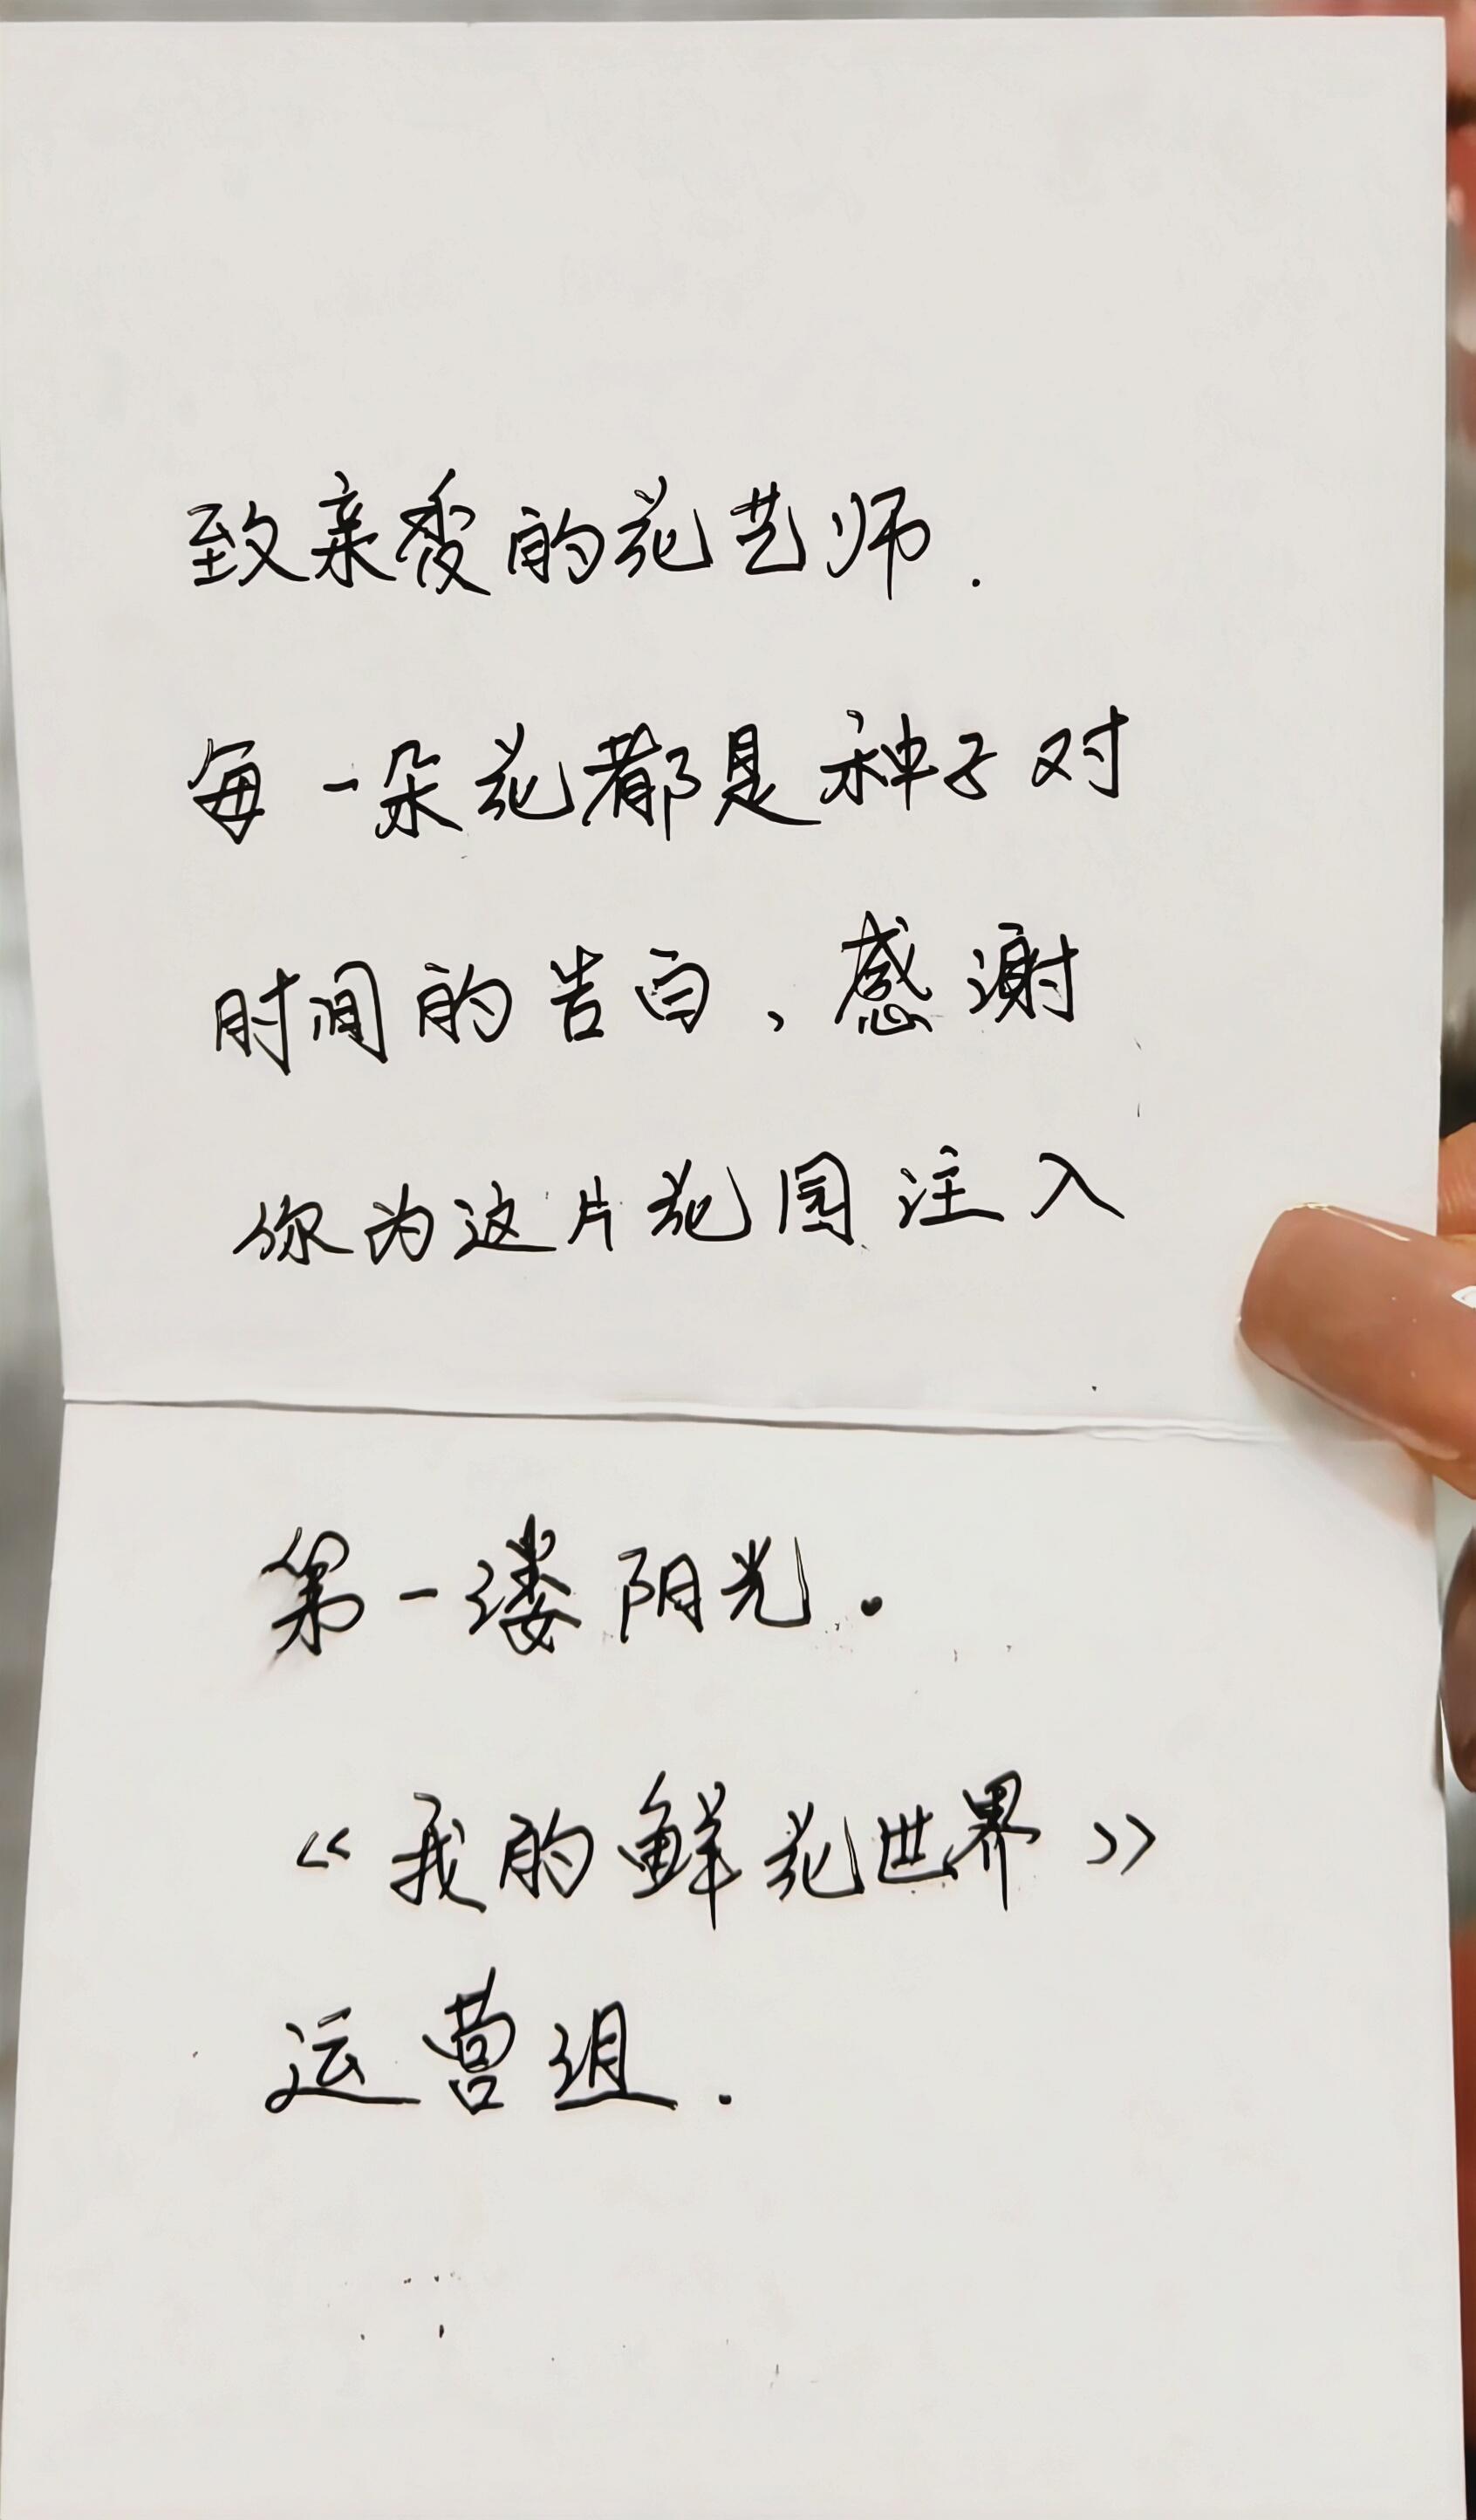 致亲爱的花艺师.
每一朵花都是种子对
时间的告白、感谢
你为这片花园注入
第一缕阳光.
《我的鲜花世界》
运营组.